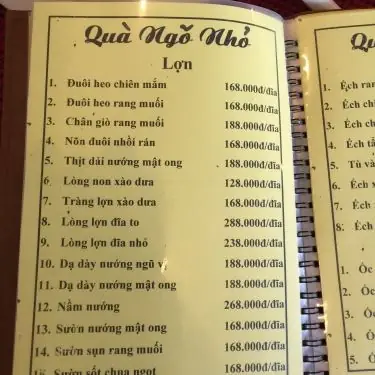 Quà Ngõ Nhỏ
Lợn
1. Đuôi heo chiên mắm 168.000đ/đĩa
2. Đuôi heo rang muối 168.000đ/đĩa
3. Chân giò rang muối 188.000đ/đĩa
4. Nõn đuôi nhồi rán 168.000đ/đĩa
5. Thịt dải nướng mật ong 188.000đ/đĩa
6 Lòng non xào dưa 128.000đ/đĩa
7. Tràng lợn xào dưa 168.000đ/đĩa
8. Lòng lợn đĩa to 288.000đ/đĩa
9. Lòng lợn đĩa nhỏ 238.000đ/đĩa
10. Dạ dày nướng ngũ vị 188.000đ/đĩa
11. Dạ dày nướng mật ong 188.000đ/đĩa
12. Nầm nướng 268.000đ/đĩa
13. Sườn nướng mật ong 168.000đ/đĩa
14. Sườn sụn rang muối 168.000đ/đĩa
Sườn sốt chua ngọt 168.000đ/đĩa
Qu
1. Ếch ran
2. Ếch chi
3. Ếch ch
4. Ếch tẩ
5. Tù và
6. Ếch x
7. Ếch
8. Ếch
1. Ốc
2. Ốc
3. Ốc
4. Ố
5. Ố